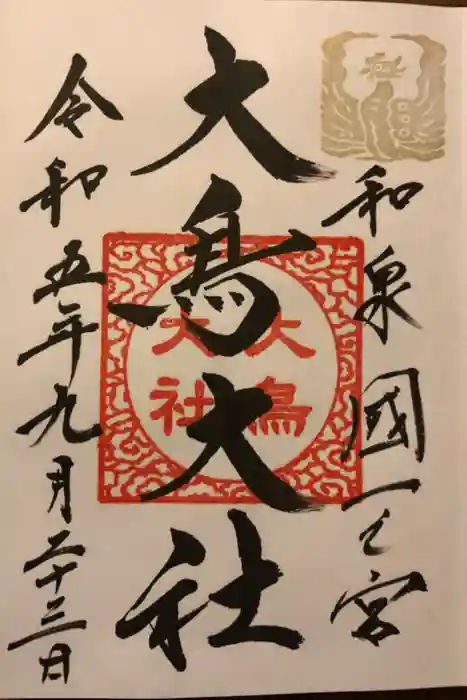 和泉國一之宮
大鳥大社
大鳥大社
令和五年九月二十三日